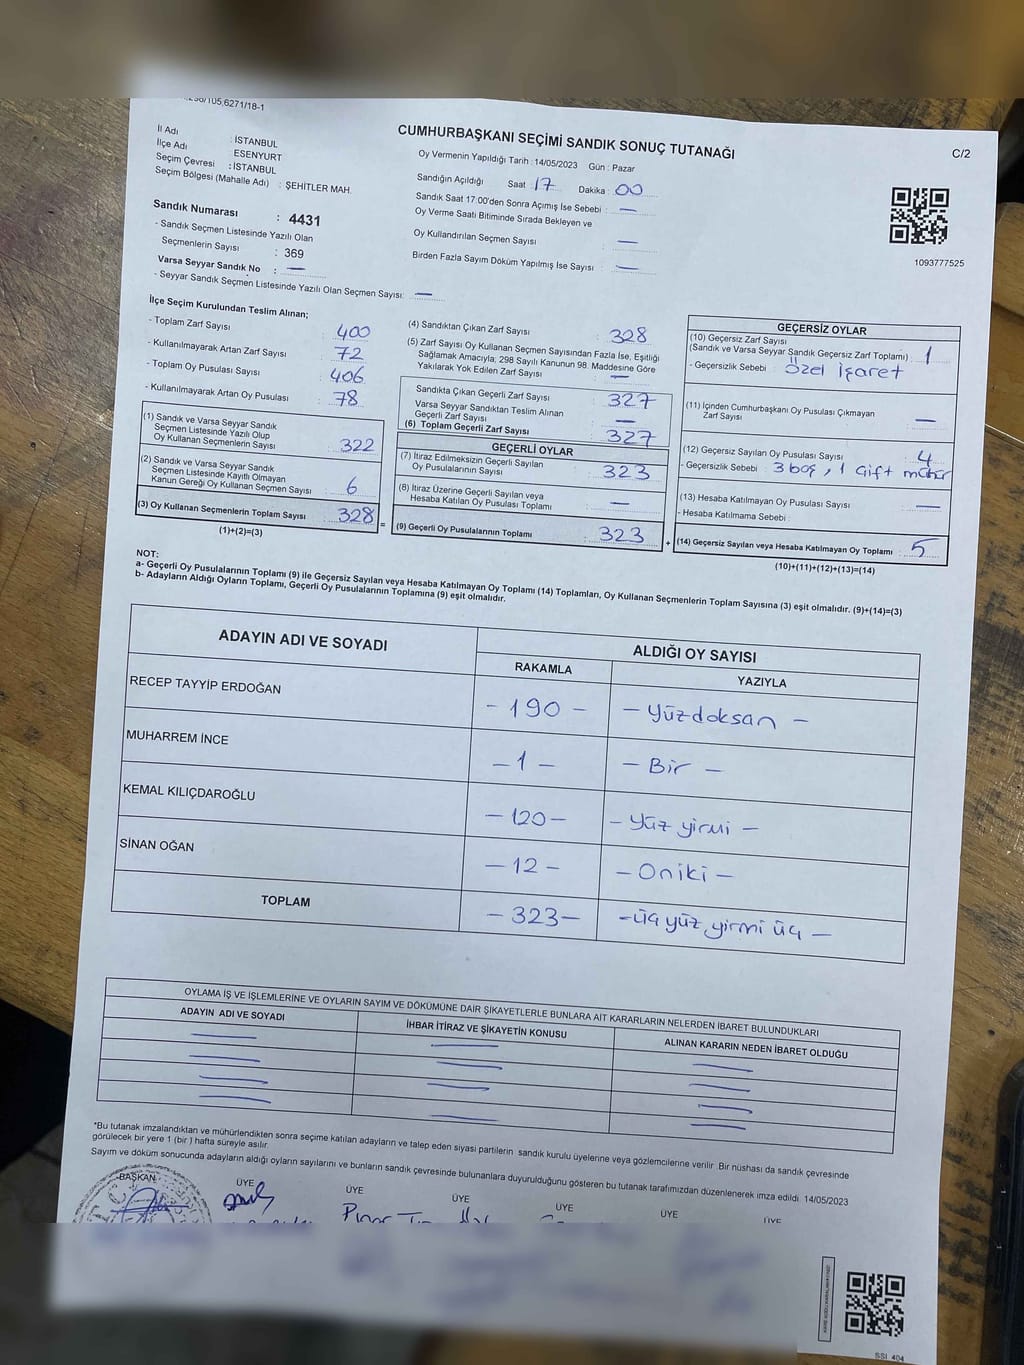 CUMHURBAŞKANI SEÇİMİ SANDIK SONUÇ TUTANAĞI
C/2
İl Adı : İSTANBUL
İlçe Adı : ESENYURT
Seçim Çevresi : İSTANBUL
Seçim Bölgesi (Mahalle Adı) : ŞEHİTLER MAH.
Sandık Numarası : 4431
- Sandık Seçmen Listesinde Yazılı Olan
Seçmenlerin Sayısı : 369
Varsa Seyyar Sandık No : —
- Seyyar Sandık Seçmen Listesinde Yazılı Olan Seçmen Sayısı: —
Oy Vermenin Yapıldığı Tarih : 14/05/2023 Gün : Pazar
Sandığın Açıldığı Saat 17 Dakika : 00
Sandık Saat 17:00'den Sonra Açımış İse Sebebi : —
Oy Verme Saati Bitiminde Sırada Bekleyen ve
Oy Kullandırılan Seçmen Sayısı : —
Birden Fazla Sayım Döküm Yapılmış İse Sayısı : —
1093777525
İlçe Seçim Kurulundan Teslim Alınan;
- Toplam Zarf Sayısı : 400
- Kullanılmayarak Artan Zarf Sayısı : 72
- Toplam Oy Pusulası Sayısı : 406
- Kullanılmayarak Artan Oy Pusulası : 78
(1) Sandık ve Varsa Seyyar Sandık
Seçmen Listesinde Yazılı Olup
Oy Kullanan Seçmenlerin Sayısı : 322
(2) Sandık ve Varsa Seyyar Sandık
Seçmen Listesinde Kayıtlı Olmayan
Kanun Gereği Oy Kullanan Seçmen Sayısı : 6
(3) Oy Kullanan Seçmenlerin Toplam Sayısı : 328
(1)+(2)=(3)
=
(4) Sandıktan Çıkan Zarf Sayısı : 328
(5) Zarf Sayısı Oy Kullanan Seçmen Sayısından Fazla İse, Eşitliği
Sağlamak Amacıyla; 298 Sayılı Kanunun 98. Maddesine Göre
Yakılarak Yok Edilen Zarf Sayısı : —
Sandıkta Çıkan Geçerli Zarf Sayısı : 327
Varsa Seyyar Sandıktan Teslim Alınan
Geçerli Zarf Sayısı : —
(6) Toplam Geçerli Zarf Sayısı : 327
GEÇERLİ OYLAR
(7) İtiraz Edilmeksizin Geçerli Sayılan
Oy Pusulalarının Sayısı : 323
(8) İtiraz Üzerine Geçerli Sayılan veya
Hesaba Katılan Oy Pusulası Toplamı : —
(9) Geçerli Oy Pusulalarının Toplamı : 323
+
GEÇERSİZ OYLAR
(10) Geçersiz Zarf Sayısı
(Sandık ve Varsa Seyyar Sandık Geçersiz Zarf Toplamı) : 1
- Geçersizlik Sebebi : Özel işaret
(11) İçinden Cumhurbaşkanı Oy Pusulası Çıkmayan
Zarf Sayısı : —
(12) Geçersiz Sayılan Oy Pusulası Sayısı : 4
- Geçersizlik Sebebi : 3 boş, 1 Çift mühür
(13) Hesaba Katılmayan Oy Pusulası Sayısı : —
- Hesaba Katılmama Sebebi :
(14) Geçersiz Sayılan veya Hesaba Katılmayan Oy Toplamı : 5
(10)+(11)+(12)+(13)=(14)
NOT:
a- Geçerli Oy Pusulasının Toplamı (9) ile Geçersiz Sayılan veya Hesaba Katılmayan Oy Toplamı (14) Toplamları, Oy Kullanan Seçmenlerin Toplam Sayısına (3) eşit olmalıdır. (9)+(14)=(3)
b- Adayların Aldığı Oyların Toplamı, Geçerli Oy Pusulalarının Toplamına (9) eşit olmalıdır.
ADAYIN ADI VE SOYADI ALDIĞI OY SAYISI
RAKAMLA YAZIYLA
RECEP TAYYİP ERDOĞAN - 190 - - Yüzdoksan -
MUHARREM İNCE - 1 - - Bir -
KEMAL KILIÇDAROĞLU - 120 - - Yüz yirmi -
SİNAN OĞAN - 12 - - Oniki -
TOPLAM - 323 - - üç yüz yirmi üç -
OYLAMA İŞ VE İŞLEMLERİNE VE OYLARIN SAYIM VE DÖKÜMÜNE DAİR ŞİKAYETLERLE BUNLARA AİT KARARLARIN NELERDEN İBARET BULUNDUKLARI
ADAYIN ADI VE SOYADI İHBAR İTİRAZ VE ŞİKAYETİN KONUSU ALINAN KARARIN NEDEN İBARET OLDUĞU
*Bu tutanak imzalandıktan ve mühürlendikten sonra seçime katılan adayların ve talep eden siyasi partilerin sandık kurulu üyelerine veya gözlemcilerine verilir. Bir nüshası da sandık çevresinde
görülecek bir yere 1 (bir ) hafta süreyle asılır.
Sayım ve döküm sonucunda adayların aldığı oyların sayılarını ve bunların sandık çevresinde bulunanlara duyurulduğunu gösteren bu tutanak tarafımızdan düzenlenerek imza edildi. 14/05/2023
BAŞKAN ÜYE ÜYE ÜYE ÜYE ÜYE ÜYE
Pınar